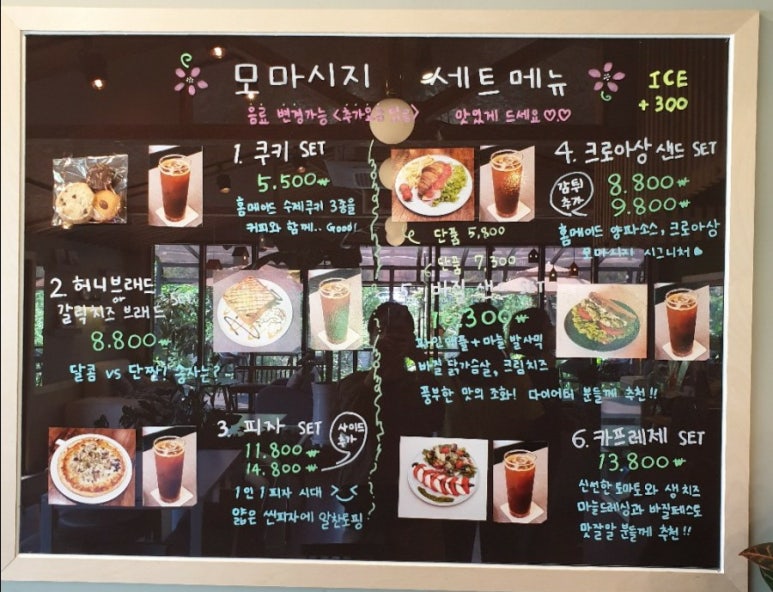 모마시지 세트메뉴
ICE
+300
음료 변경가능 <추가요금 있음> 맛있게 드세요♡♡
1. 쿠키 SET
5.500₩
홈메이드 수제쿠키 3종을
커피와 함께.. Good!
2. 허니브래드
or
갈릭치즈 브래드 SET
8.800₩
달콤 vs 단짠! 승자는?
3. 피자 SET
사이드
추가
11.800₩
14.800₩
1인 1피자 시대 >_<
얇은 씬피자에 알찬토핑
4. 크로아상 샌드 SET
감튀
추가
8.800₩
9.800₩
단품 5,800
홈메이드 양파소스, 크로아상
모마시지 시그니처
단품 7,300
5. 바질 샌드 SET
300₩
파인애플 + 마늘 발사믹
바질 닭가슴살, 크림치즈
풍부한 맛의 조화! 다이어터 분들께 추천!!
6. 카프레제 SET
13.800₩
신선한 토마토와 생치즈
마늘드레싱과 바질페스토
맛잘알 분들께 추천!!